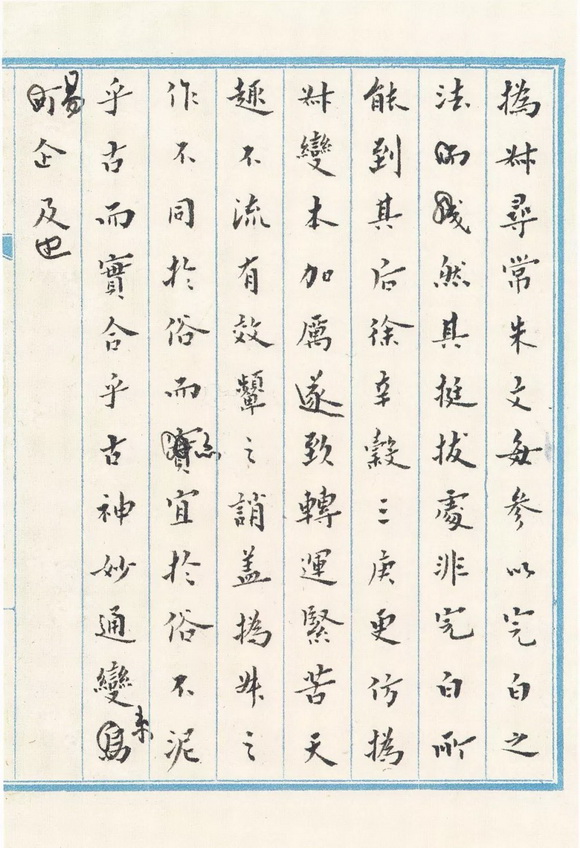 撝叔尋常朱文每參以完白之
法然其挺拔處非完白所
能到其后徐辛穀三庚更仿撝
叔變本加厲遂致轉運緊苦天
趣不流有效顰之誚蓋撝叔之
作不同於俗而宜於俗不泥
乎古而實合乎古神妙通變未
易企及也